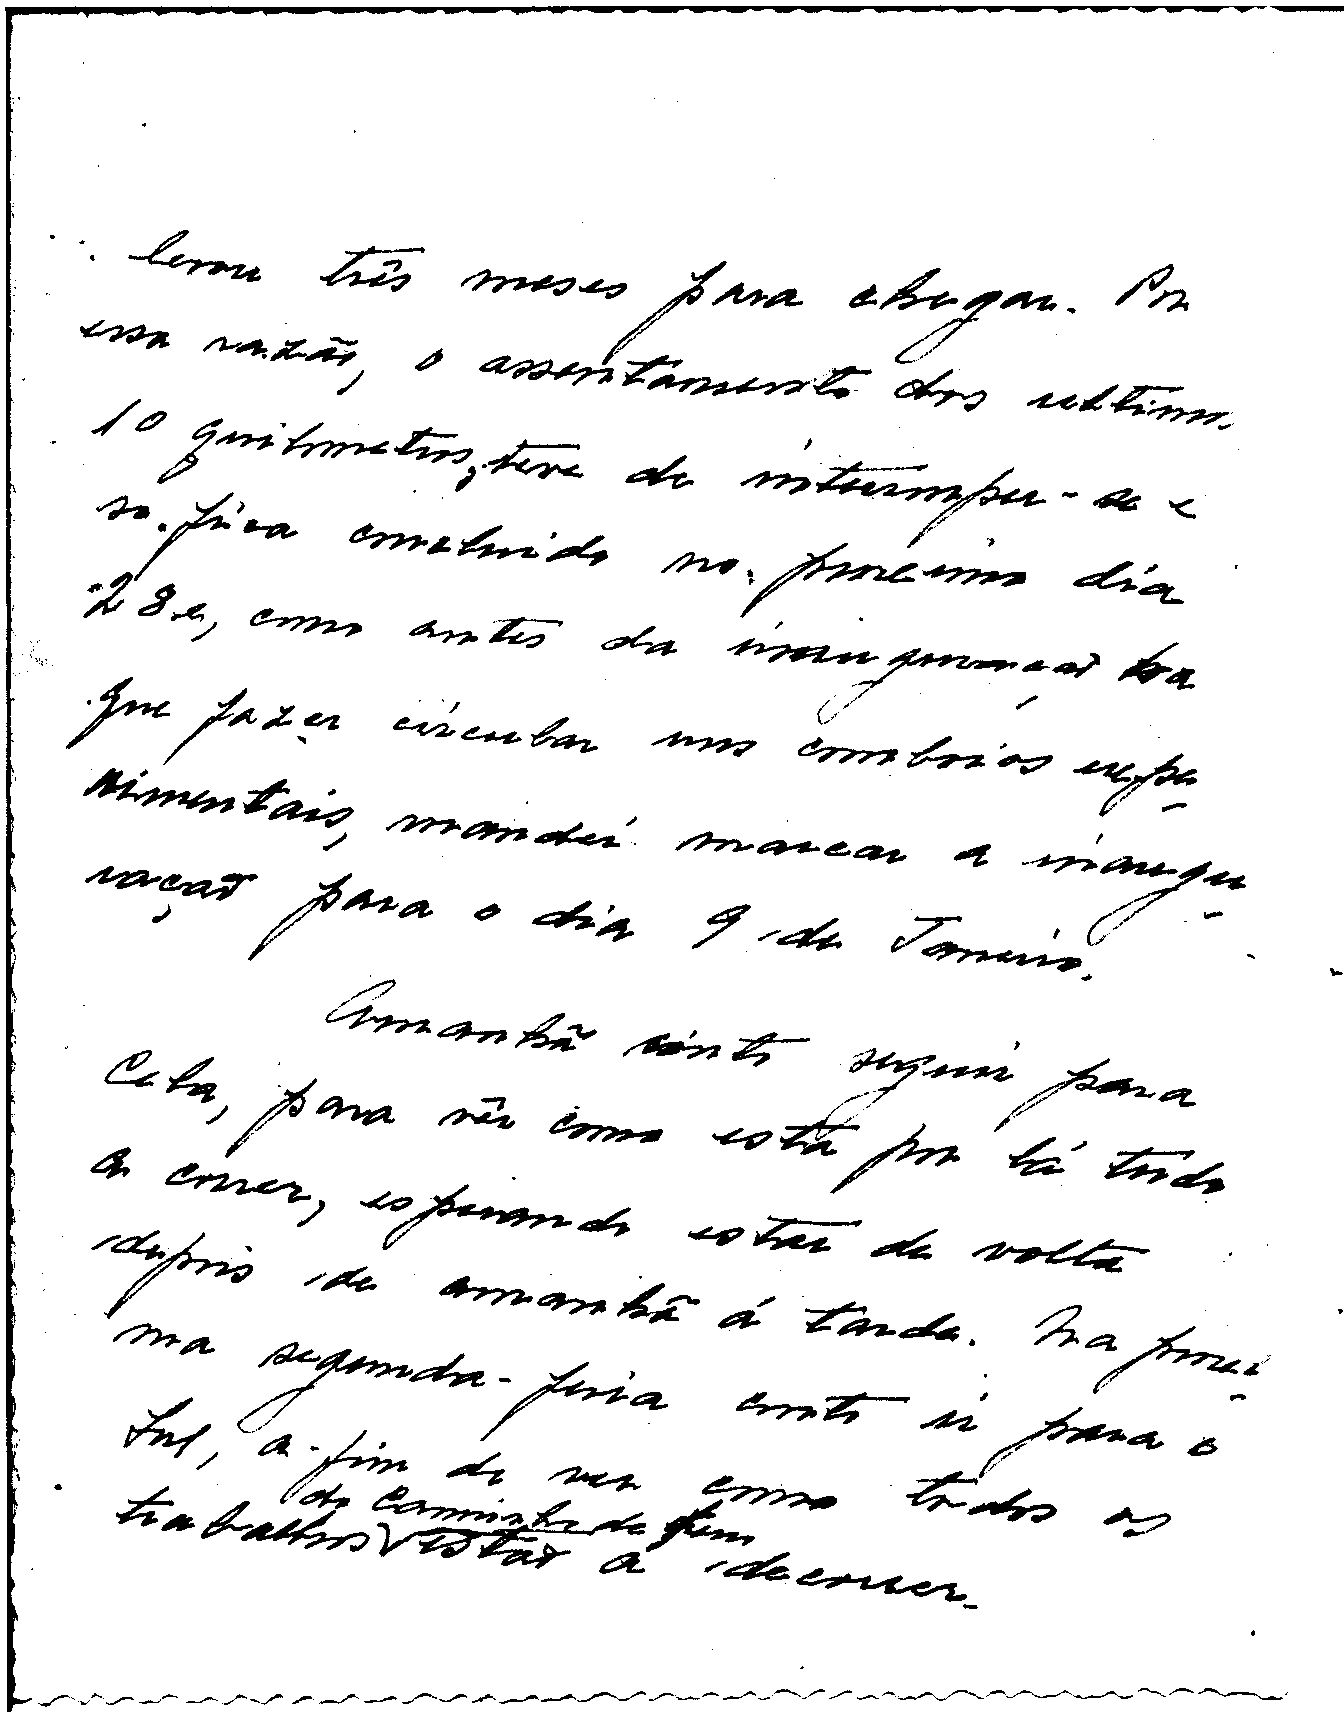 levou três meses para chegar. Por
essa razão, o assentamento dos ultimos
10 quilometros, teve de interromper-se e
só fica concluido no proximo dia
28 e, como antes da inauguração há
que fazer circular uns comboios expe-
rimentais, mandei marcar a inaugu-
ração para o dia 9 de Janeiro.
Amanhã conto seguir para
Cela, para vêr como está por lá tudo
a correr, esperando estar de volta
depois de amanhã á tarde. Na proxi-
ma segunda-feira conto ir para o
Sul, a-fim de ver como todos os
do Caminho de ferro
trabalhos estão a decorrer.